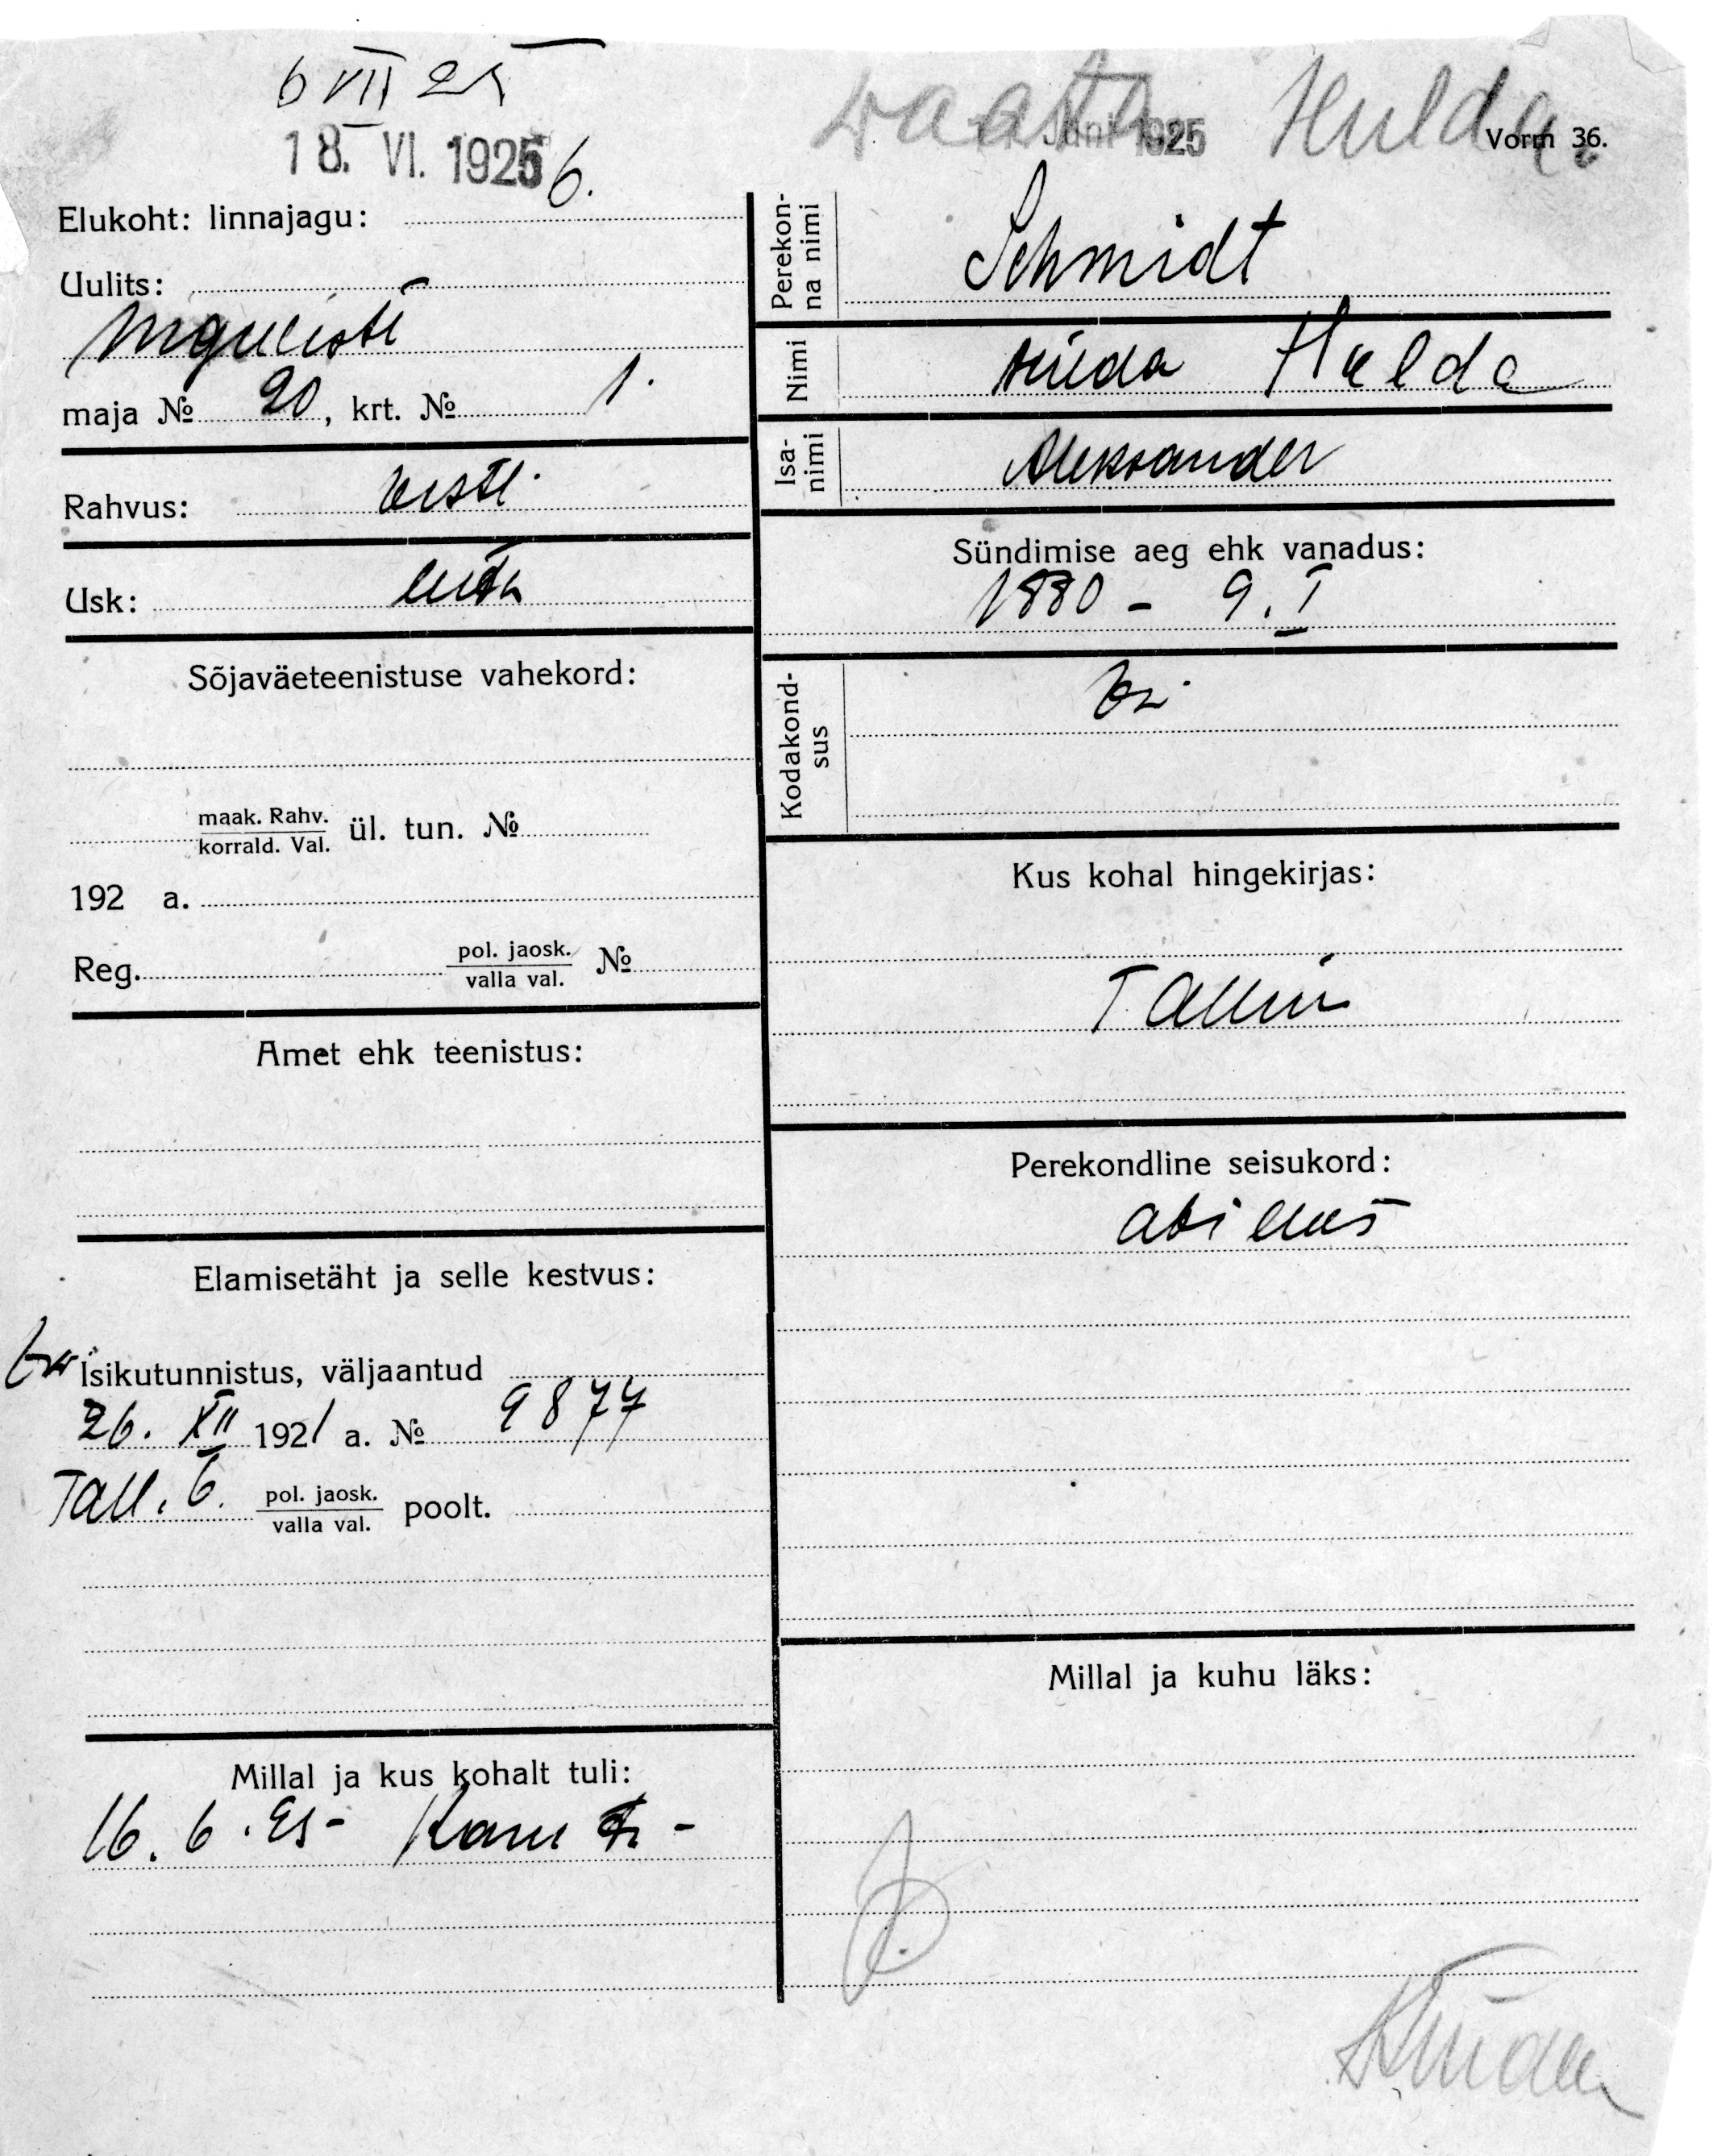 6 VII 25
18. VI. 1925
waata Hulda
Juni 1925
Vorm 36.
Elukoht: linnajagu: 6.
Uulits:
Niguliste
maja № 20, krt. № 1.
Rahvus: eestl.
Usk: luth
Sõjaväeteenistuse vahekord:
maak. Rahv.
korrald. Val. ül. tun. №
192 a.
Reg. pol. jaosk.
valla val. №
Amet ehk teenistus:
Elamisetäht ja selle kestvus:
Isikutunnistus, väljaantud
26. XII 1921 a. № 9877
Tall. 6. pol. jaosk.
valla val. poolt.
Millal ja kus kohalt tuli:
16. 6. 25-
Perekon-
na nimi
Schmidt
Nimi
Hilda Hulda
Isa-
nimi
Aleksander
Sündimise aeg ehk vanadus:
1880 - 9. I
Kodakond-
sus
Kus kohal hingekirjas:
Tallin
Perekondline seisukord:
abielus
Millal ja kuhu läks: